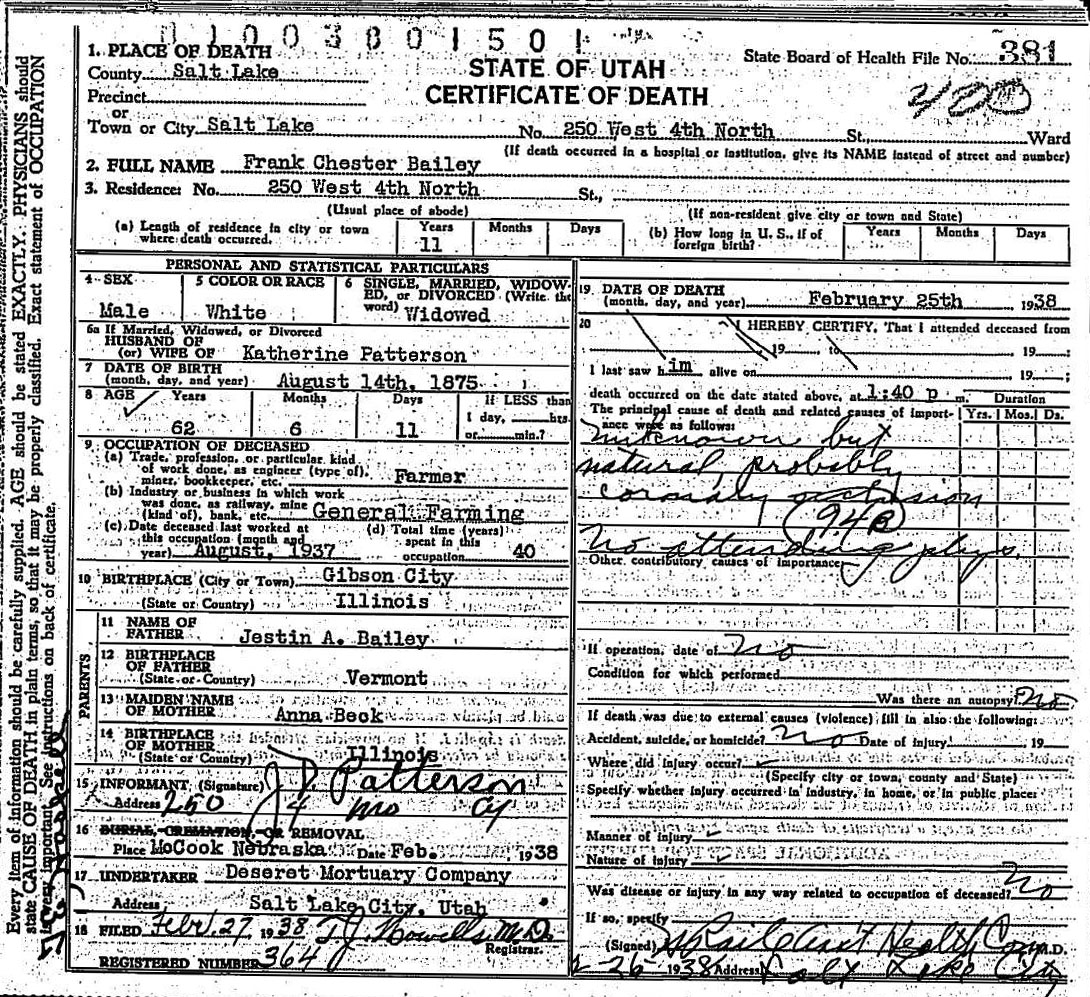 0100380150 1
1. PLACE OF DEATH
County Salt Lake
Precinct
or
Town or City Salt Lake
STATE OF UTAH
CERTIFICATE OF DEATH
State Board of Health File No. 381
400
No. 250 West 4th North St., Ward
(If death occurred in a hospital or institution, give its NAME instead of street and number)
2. FULL NAME Frank Chester Bailey
3. Residence: No. 250 West 4th North St.,
(Usual place of abode)
(If non-resident give city or town and State)
(a) Length of residence in city or town where death occurred. Years 11 Months Days
(b) How long in U. S., if of foreign birth? Years Months Days
PERSONAL AND STATISTICAL PARTICULARS
4 SEX Male
5 COLOR OR RACE White
6 SINGLE, MARRIED, WIDOWED, or DIVORCED (Write the word) Widowed
6a If Married, Widowed, or Divorced
HUSBAND OF
(or) WIFE OF Katherine Patterson
7 DATE OF BIRTH
(month, day, and year) August 14th, 1875
8 AGE Years 62 Months 6 Days 11 If LESS than 1 day, hrs. or min.?
9 OCCUPATION OF DECEASED
(a) Trade, profession, or particular kind
of work done, as engineer (type of),
miner, bookkeeper, etc. Farmer
(b) Industry or business in which work
was done, as railway, mine
(kind of), bank, etc. General Farming
(c) Date deceased last worked at
this occupation (month and
year) August, 1937
(d) Total time (years)
spent in this
occupation 40
10 BIRTHPLACE (City or Town) Gibson City
(State or Country) Illinois
PARENTS
11 NAME OF
FATHER Jestin A. Bailey
12 BIRTHPLACE
OF FATHER
(State or Country) Vermont
13 MAIDEN NAME
OF MOTHER Anna Beck
14 BIRTHPLACE
OF MOTHER
(State or Country) Illinois
15 INFORMANT (Signature) J D Patterson
Address 250 4 no Cy
16 BURIAL, CREMATION, OR REMOVAL
Place McCook Nebraska Date Feb. 1938
17 UNDERTAKER Deseret Mortuary Company
Address Salt Lake City, Utah
18 FILED Feb. 27 1938 T. J. Howells M.D.
Registrar.
REGISTERED NUMBER 364
19 DATE OF DEATH
(month, day, and year) February 25th 1938
20 I HEREBY CERTIFY, That I attended deceased from
19 to 19
I last saw him alive on 19
death occurred on the date stated above, at 1:40 p m.
The principal cause of death and related causes of importance were as follows:
Duration
Yrs. Mos. Ds.
unknown but
natural, probably
coronary occlusion
94B
No attending phys.
Other contributory causes of importance
If operation, date of No
Condition for which performed
Was there an autopsy? No
If death was due to external causes (violence) fill in also the following:
Accident, suicide, or homicide? No Date of injury 19
Where did injury occur?
(Specify city or town, county and State)
Specify whether injury occurred in industry, in home, or in public place:
Manner of injury
Nature of injury
Was disease or injury in any way related to occupation of deceased? No
If so, specify
(Signed) Health Com M.D.
2-26 1938 Address Salt Lake City
Every item of information should be carefully supplied. AGE should be stated EXACTLY. PHYSICIANS should
state CAUSE OF DEATH in plain terms, so that it may be properly classified. Exact statement of OCCUPATION
is very important. See instructions on back of certificate.